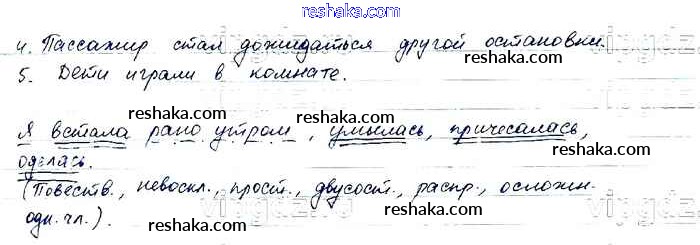 reshaka.com
4. Пассажир стал дожидаться другой остановки.
5. Дети играли в комнате.
reshaka.com
reshaka.com
Я встала рано утром, умылась, причесалась,
оделась.
reshaka.com
reshaka.com
(Повеств., невоскл., прост., двусост., распр., осложн.
одн. чл.).
reshaka.com
reshaka.com